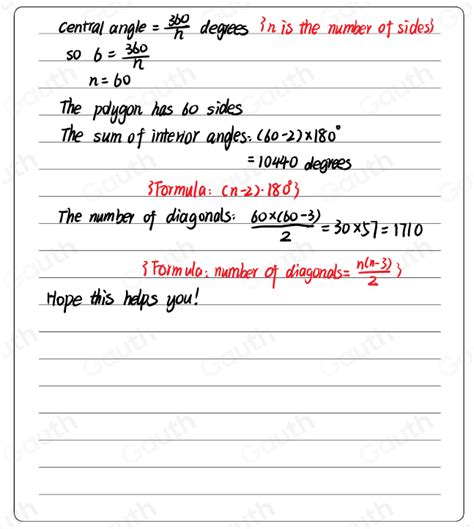 central angle = 360/n degrees {n is the number of sides}
so 6 = 360/n
n = 60
The polygon has 60 sides
The sum of interior angles: (60-2)×180°
= 10440 degrees
{Formula: (n-2)·180°}
The number of diagonals: 60×(60-3)/2 = 30×57 = 1710
{Formula: number of diagonals = n(n-3)/2}
Hope this helps you!
Gauth